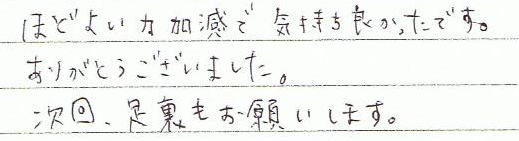 ほどよい力加減で気持ち良かったです。
ありがとうございました。
次回、足裏もお願いします。